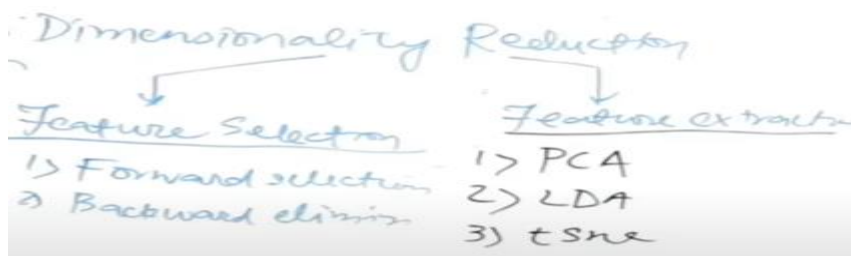 Dimensionality Reduction
Feature Selection
1) Forward selection
2) Backward elimin
Feature extractio
1) PCA
2) LDA
3) tsne